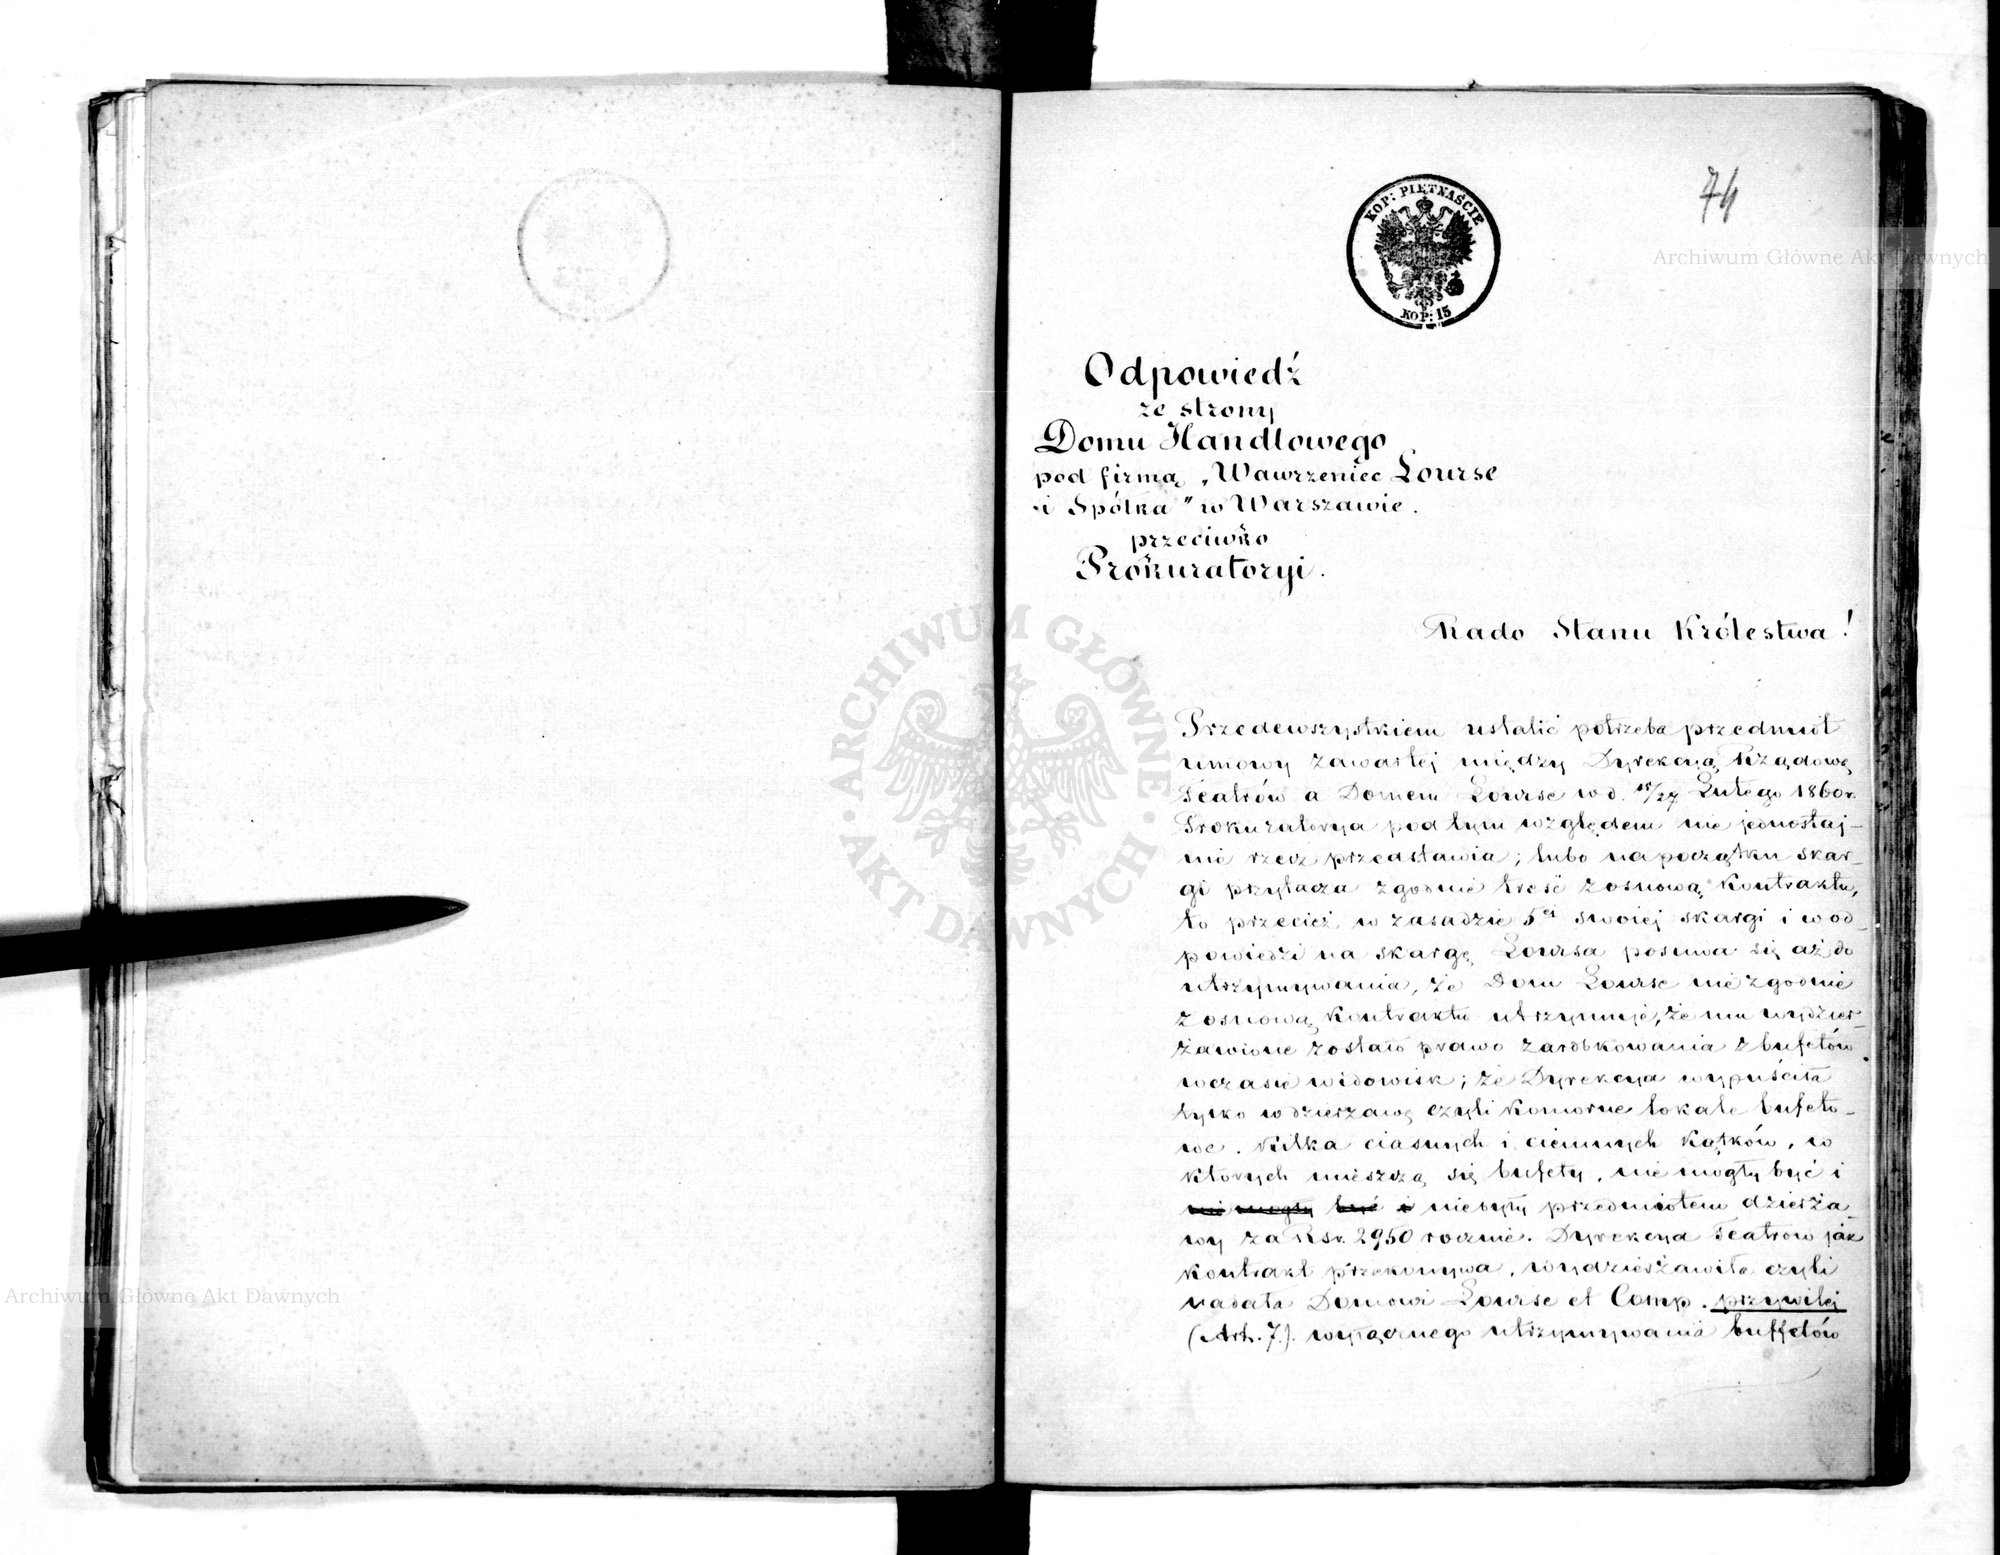 74
KOP: PIĘTNAŚCIE
KOP: 15
Archiwum Główne Akt Dawnych
Odpowiedź
ze strony
Domu Handlowego
pod firmą „Wawrzeniec Lourse
i Spółka" w Warszawie.
przeciwko
Prokuratoryi.
Rado Stanu Królestwa!
Przedewszystkiem ustalić potrzeba przedmiot
umowy zawartej między Dyrekcyą Rządową
Teatrów a Domem Lourse w d. 15/27 Lutego 1860 r.
Prokuratorya pod tym względem nie jednostaj-
nie rzecz przedstawia; lubo na początku skar-
gi przytacza zgodnie treść z osnową Kontraktu,
to przecież w zasadzie 5ej swoiej skargi i w od-
powiedzi na skargę Loursa posuwa się aż do
utrzymywania, że Dom Lourse nie zgodnie
z osnową Kontraktu utrzymuje, że mu wydzier-
żawione zostało prawo zarobkowania z bufetów
w czasie widowisk; że Dyrekcya wypuściła
tylko w dzierżawę czyli Komorne lokale bufeto-
we. Kilka ciasnych i ciemnych kątków, w
których mieszczą się bufety, nie mogły być i
nie mogły być i niebyły przedmiotem dzierża-
wy za Rsr. 2950 rocznie. Dyrekcya Teatrów jak
Kontrakt przekonywa, wydzierżawiła czyli
nadała Domowi Lourse et Comp. przywilej
(Art. 7.) wyłącznego utrzymywania buffetów
ARCHIWUM GŁÓWNE · AKT DAWNYCH ·
Archiwum Główne Akt Dawnych